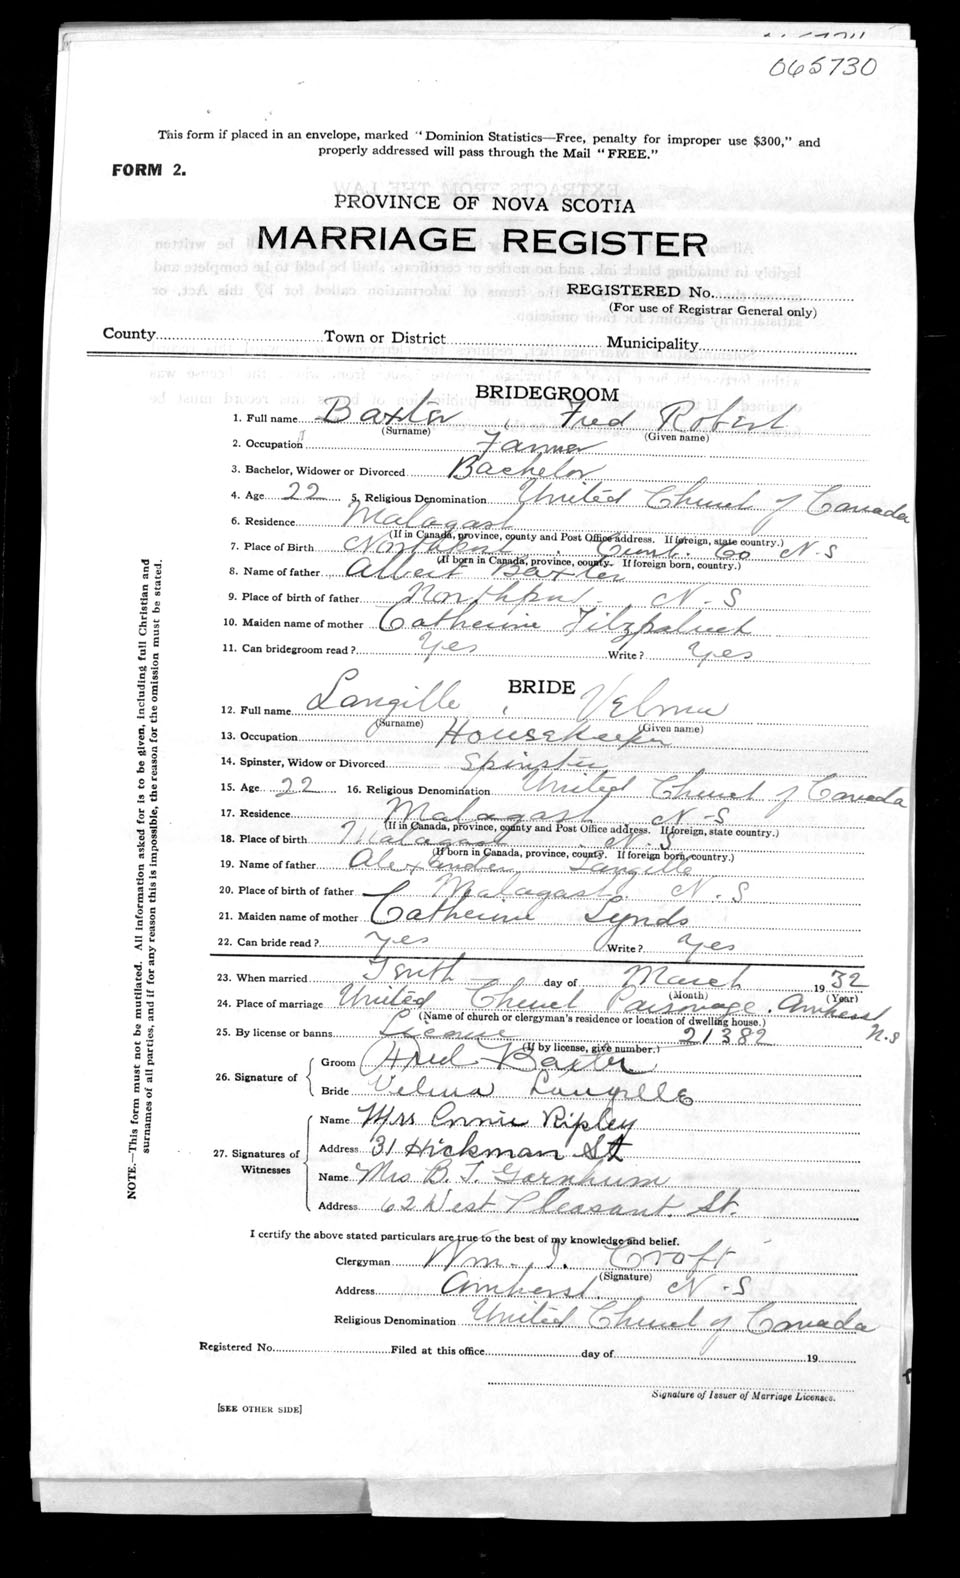 065730
This form if placed in an envelope, marked "Dominion Statistics—Free, penalty for improper use $300," and
properly addressed will pass through the Mail "FREE."
FORM 2.
PROVINCE OF NOVA SCOTIA
MARRIAGE REGISTER
REGISTERED No.
(For use of Registrar General only)
County Town or District Municipality
BRIDEGROOM
1. Full name Baxter, Fred Robert
(Surname) (Given name)
2. Occupation Farmer
3. Bachelor, Widower or Divorced Bachelor
4. Age 22 5. Religious Denomination United Church of Canada
6. Residence Malagash
(If in Canada, province, county and Post Office address. If foreign, state country.)
7. Place of Birth Northport, Cumb. Co N-S
(If born in Canada, province, county. If foreign born, country.)
8. Name of father Albert Baxter
9. Place of birth of father Northport N-S
10. Maiden name of mother Catherine Fitzpatrick
11. Can bridegroom read? Yes Write? Yes
BRIDE
12. Full name Langille, Velma
(Surname) (Given name)
13. Occupation Housekeeper
14. Spinster, Widow or Divorced Spinster
15. Age 22 16. Religious Denomination United Church of Canada
17. Residence Malagash N-S
(If in Canada, province, county and Post Office address. If foreign, state country.)
18. Place of birth Malagash N-S
(If born in Canada, province, county. If foreign born, country.)
19. Name of father Alexander Langille
20. Place of birth of father Malagash N-S
21. Maiden name of mother Catherine Lynds
22. Can bride read? Yes Write? Yes
23. When married Tenth day of March 1932
(Month) (Year)
24. Place of marriage United Church Parsonage. Amherst N-S
(Name of church or clergyman's residence or location of dwelling house.)
25. By license or banns License 21382
(If by license, give number.)
26. Signature of Groom Fred Baxter
Bride Velma Langille
27. Signatures of Witnesses Name Mrs Annie Ripley
Address 31 Hickman St
Name Mrs B. T. Garnhum
Address 62 West Pleasant. St.
I certify the above stated particulars are true to the best of my knowledge and belief.
Clergyman Wm. I. Croft
(Signature)
Address Amherst. N-S
Religious Denomination United Church of Canada
Registered No. Filed at this office day of 19
Signature of Issuer of Marriage Licenses.
[SEE OTHER SIDE]
NOTE.—This form must not be mutilated. All information asked for is to be given, including full Christian and
surnames of all parties, and if for any reason this is impossible, the reason for the omission must be stated.